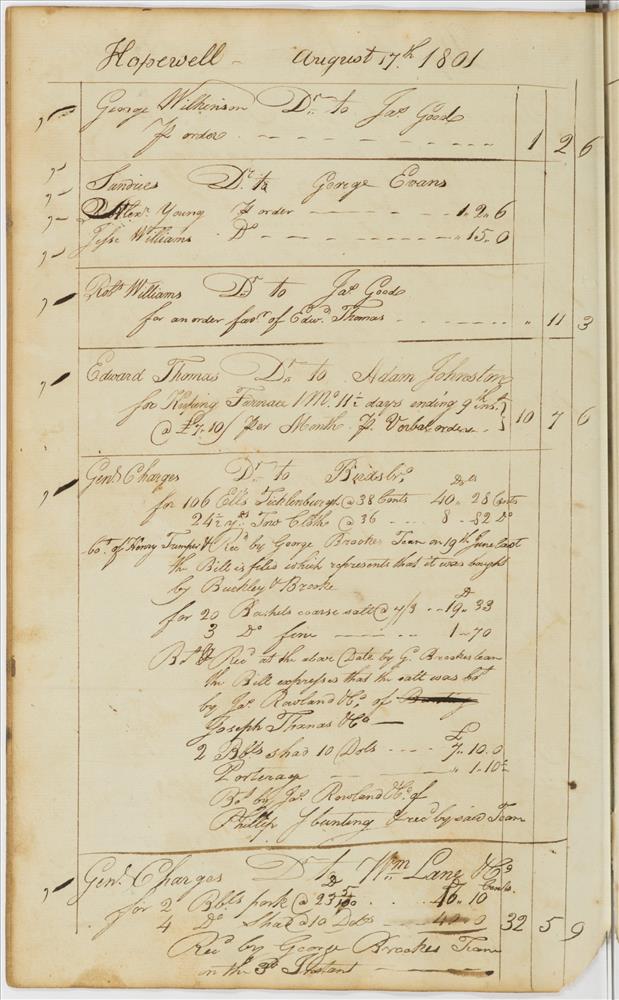 Hopewell - August 17th 1801
George Wilkinson Dr. to Jas. Good
P order - - - - - - - - - - 1 2 6
Sundries Dr. to George Evans
Alexr. Young P order - - - - - 1. 2. 6
Jesse Williams Do - - - - - - " 15. 0
Robt. Williams Dr. to Jas. Good
for an order favr. of Edwd. Thomas - - - - " 11 3
Edward Thomas Dr. to Adam Johnston
for Keeping Furnace 1 Mo. 11½ days ending 9th inst.
@ £7.10/ Per Month P. Verbal order - 10 7 6
Genl. Charges Dr. to Birds bro.
for 106 Ells Ticklenburgh @ 38 Cents 40 .. 28 Cents
24½ yds Tow Cloth @ 36 - - - - 8 - 82 Do
bot. of Henry & Recd by George Brookes Team on 19th June last
the Bill is filed which represents that it was bought
by Buckley & Brooke
for 20 Bushels coarse salt @ 4/3 - - 19. 33
3 Do fine - - - - - 1 - 70
Recd at the above Date by G. Brookes team
the Bill expresses that the salt was bot
by Jas. Rowland & Co. of
Joseph Thomas & Co -
2 Bbls shad 10 Dols - - - - 7. 10. 0
Porterage - - - - - " 1. 10½
Bot. by Jas. Rowland & Co. of
Phillip S bunting & recd by said Team
Genl. Charges Dr. to Wm Lane & Co
Cents.
for 2 Bbls pork @ 23 5/100 . . . 46. 10
4 Do Shad @ 10 Dols - - 40. 0 32 5 9
Recd by George Brookes Team
on the 3d Instant - - - -